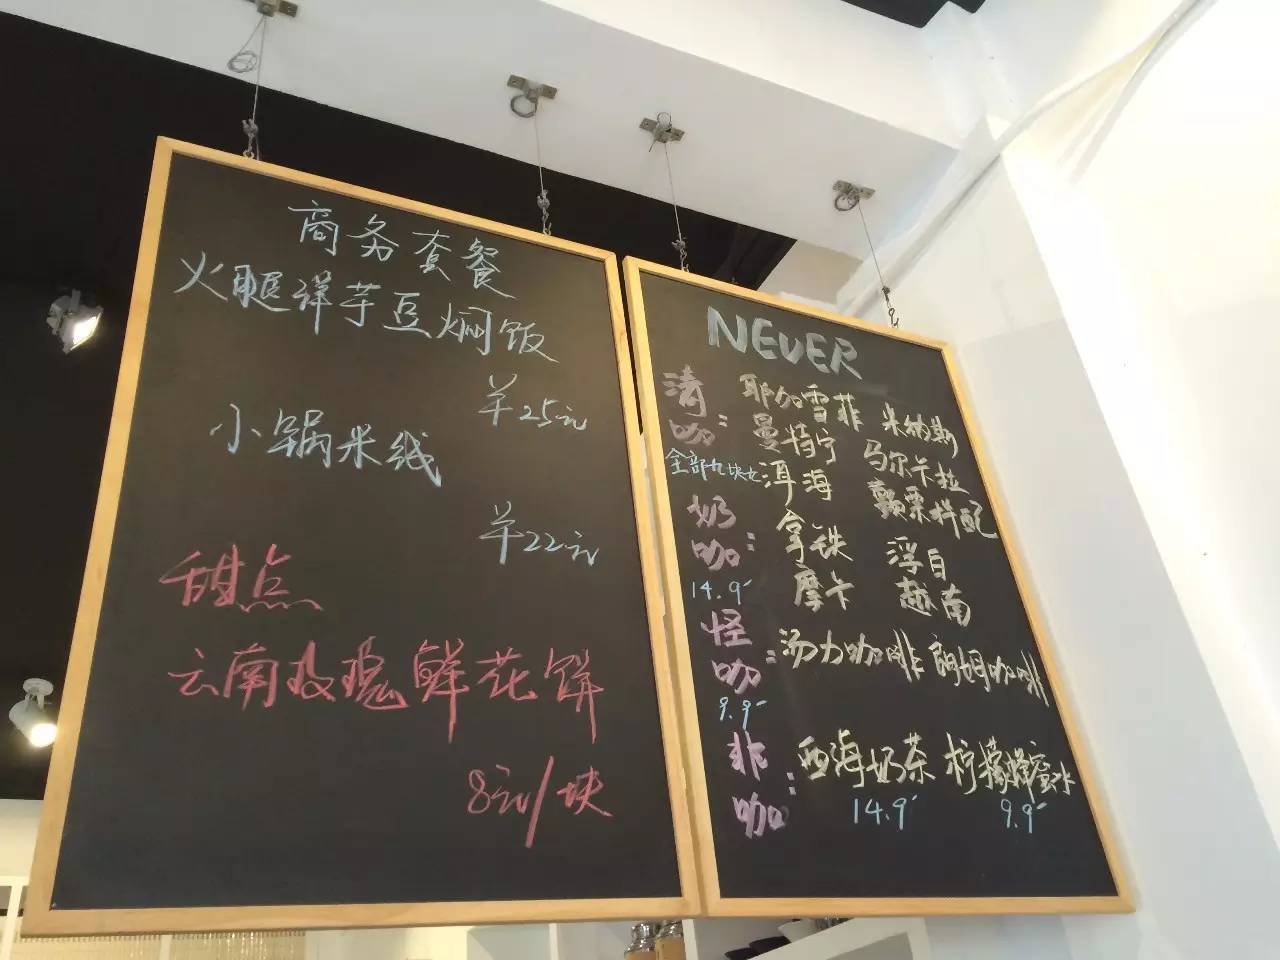 商务套餐
火腿洋芋豆焖饭
羊25元
小锅米线
羊22元
甜点
云南玫瑰鲜花饼
8元/块
NEVER
清咖: 耶加雪菲 米纳斯
曼特宁 马尔卡拉
全部九块九 洱海 颗粟拼配
奶咖: 拿铁 浮白
14.9 摩卡 越南
怪咖: 汤力咖啡 朗姆咖啡
9.9
非咖: 西海奶茶 柠檬蜂蜜水
14.9 9.9